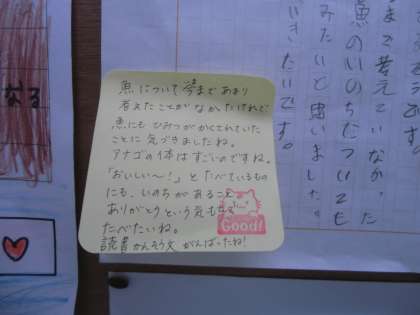 魚について今まであまり
考えたことがなかったけれど
魚にもひみつがかくれていた
ことに気づきましたね。
アナゴの体はすごいのですね。
「おいしい〜!」とたべているもの
にも、いのちがあること
ありがとうという気もちで
たべたいね。
読書かんそう文がんばったね!
Good!
まで考えていなかった
魚のいのちについても
みたいと思いました。
いきたいです。
なる